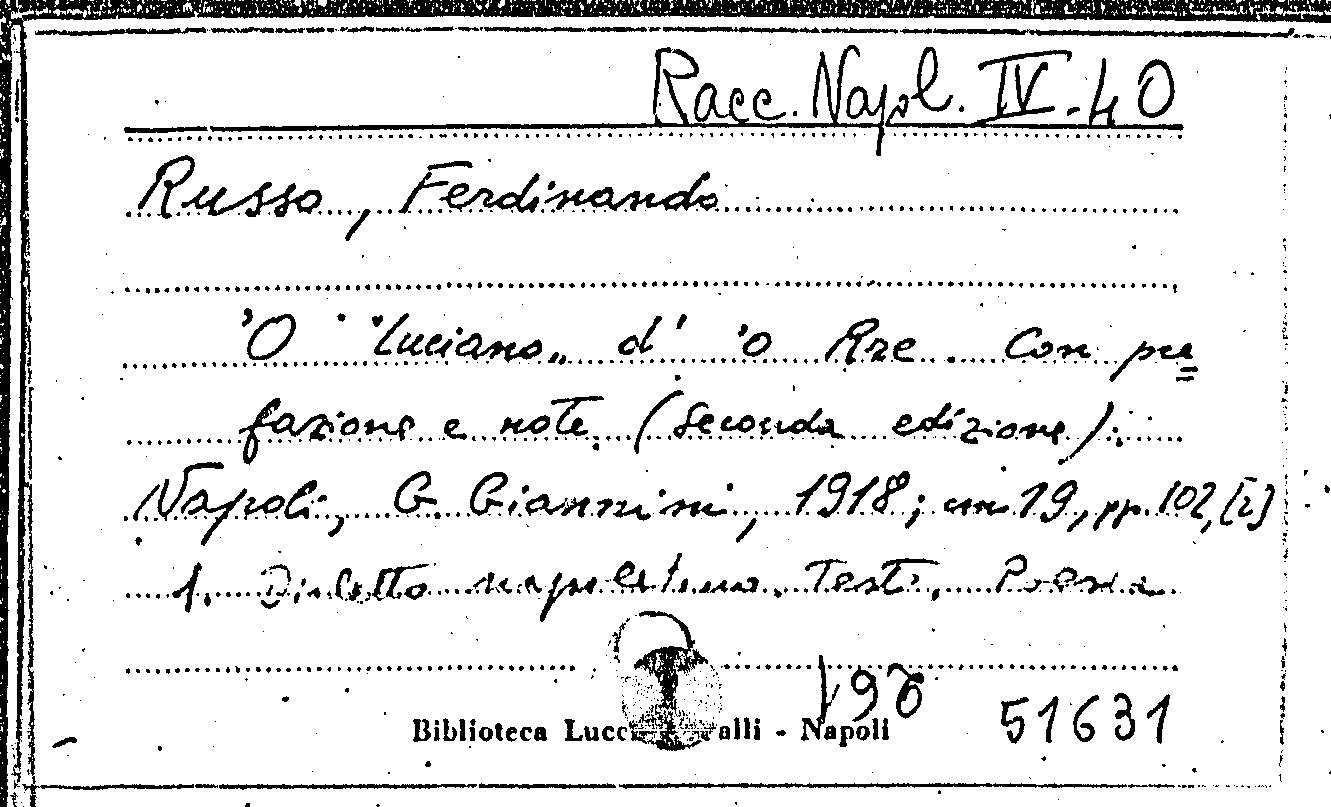 Racc. Napol. IV-40
Russo, Ferdinando
'O "Luciano" d' 'o Rre. Con pre=
fazione e note. (Seconda edizione).
Napoli, G. Giannini, 1918; cm. 19, pp. 102, [2]
1. Dialetto napoletano. Testi. Poesia
Biblioteca alli - Napoli
51631